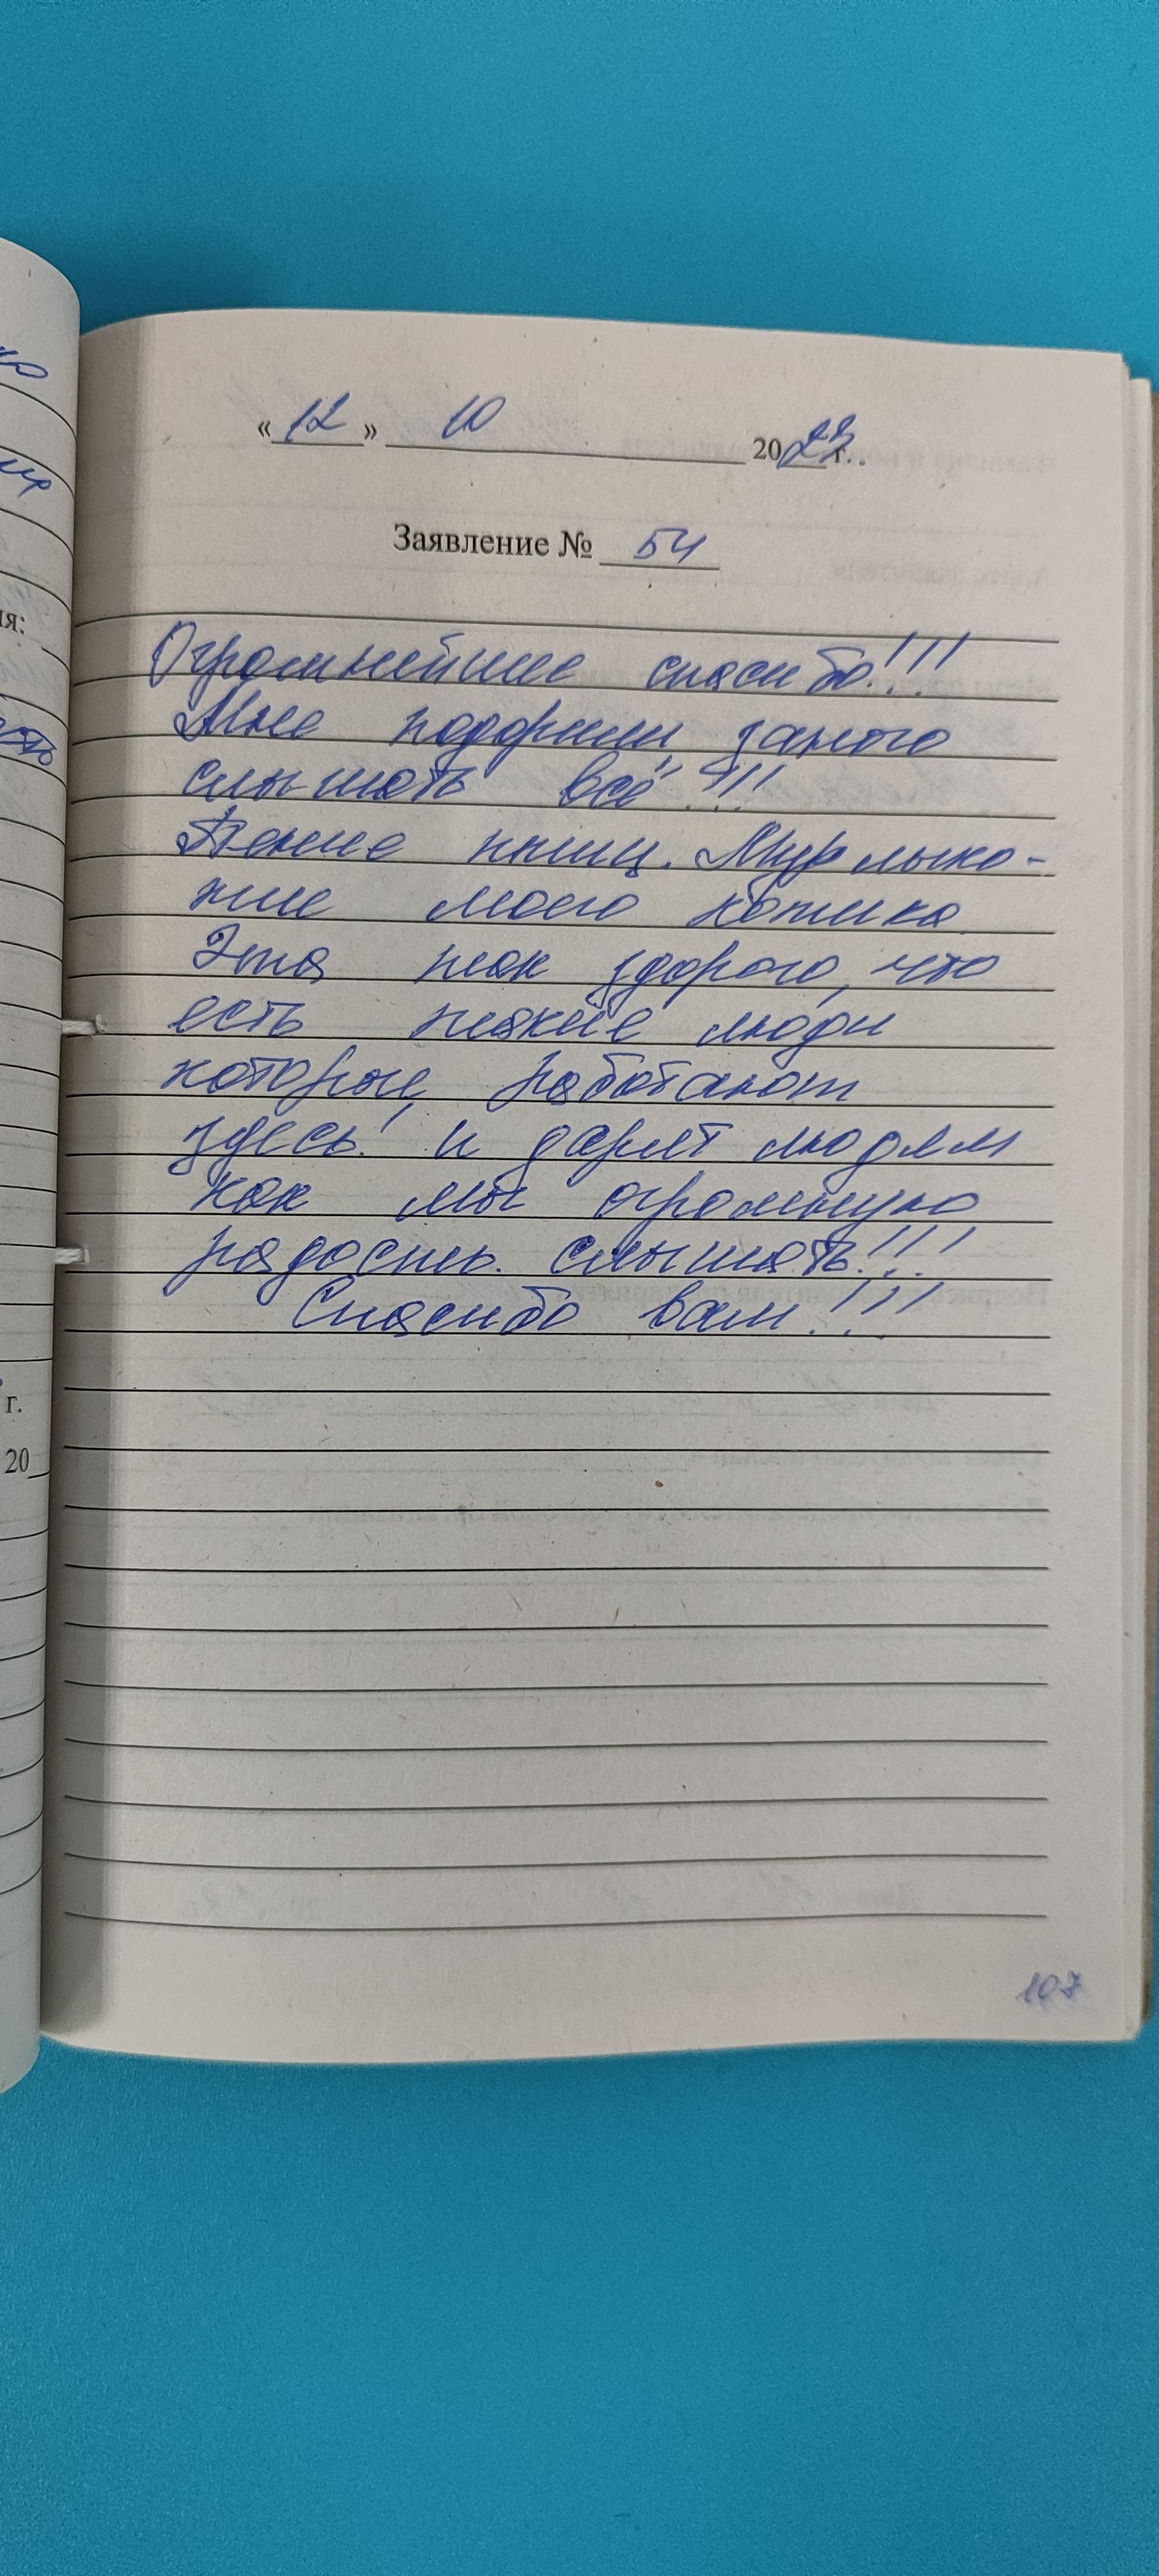 « 12 » 10 2023 г.
Заявление № 54
Огромнейшее спасибо!!!
Мне подарили заново
слышать всё!!!
Пение птиц. Мурлыка-
ние моего котика
Это так здорово, что
есть такие люди
которые работают
здесь! и дарят людям
как мы огромную
радость слышать!!!
Спасибо вам!!!
107
ия:
г.
20